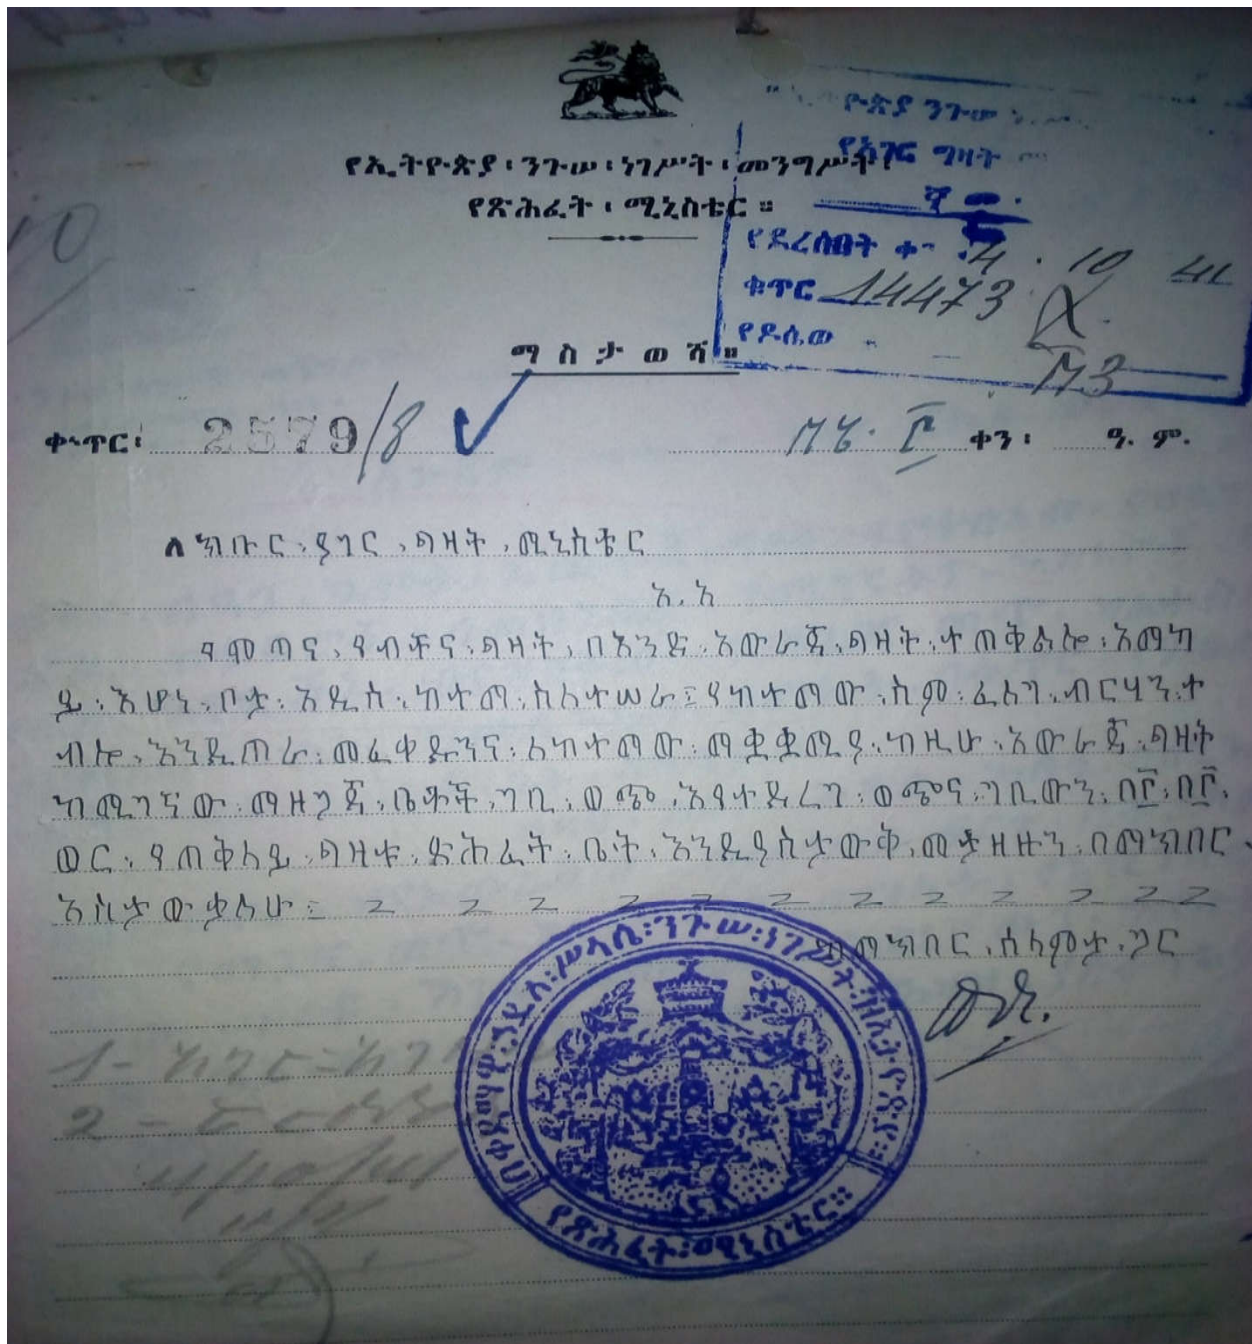 የኢትዮጵያ፡ንጉሠ፡ነገሥት፡መንግሥት፡
የጽሕፈት፡ሚኒስቴር።
ዮጵያ ንጉሠ
የአገር ግዛት
የደረሰበት ቀን 4.10.41
ቁጥር 14473
የዶሴው
ማስታወሻ።
ቀጥር፡ 2579/8
ቀን፡ ዓ. ም.
ለክቡር፡ያገር፡ግዛት፡ሚኒስቴር
አ.አ
የሞጣና፡የብቸና፡ግዛት፡በአንድ፡አውራጃ፡ግዛት፡ተጠቅልሎ፡አማካ
ይ፡በሆነ፡ቦታ፡አዲስ፡ከተማ፡ስለተሠራ፤የከተማው፡ስም፡ፈለገ፡ብርሃን፡ተ
ብሎ፡እንዲጠራ፡መፈቀዱንና፡ለከተማው፡ማቋቋሚያ፡ከዚሁ፡አውራጃ፡ግዛት
ከሚገኘው፡ማዘጋጃ፡ቤቶች፡ገቢ፡ወጭ፡እየተደረገ፡ወጭና፡ገቢውን፡በ፫፡በ፫፡
ወር፡የጠቅላይ፡ግዛቱ፡ጽሕፈት፡ቤት፡እንዲያስታውቅ፡መታዘዙን፡በማክበር
አስታውቃለሁ፤
በማክበር፡ሰላምታ፡ጋር
በቀዳማዊ፡ኃይለ፡ሥላሴ፡ንጉሠ፡ነገሥት፡ዘኢትዮጵያ፡
የጽሕፈት፡ሚኒስቴር።